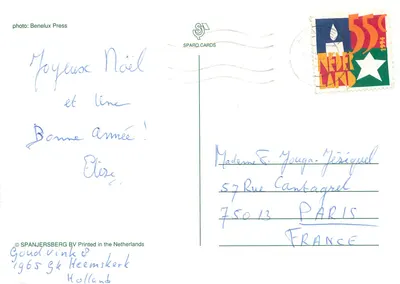 photo: Benelux Press
SPARO CARDS
Joyeux Noël
et une
Bonne année!
© SPANJERSBERG BV Printed in the Netherlands
Goudvink 8
1965 GK Heemskerk
Holland
55c
1994
NEDER
LAND
Madame E. Jézéquel
57 Rue Cantagrel
75013 PARIS
FRANCE